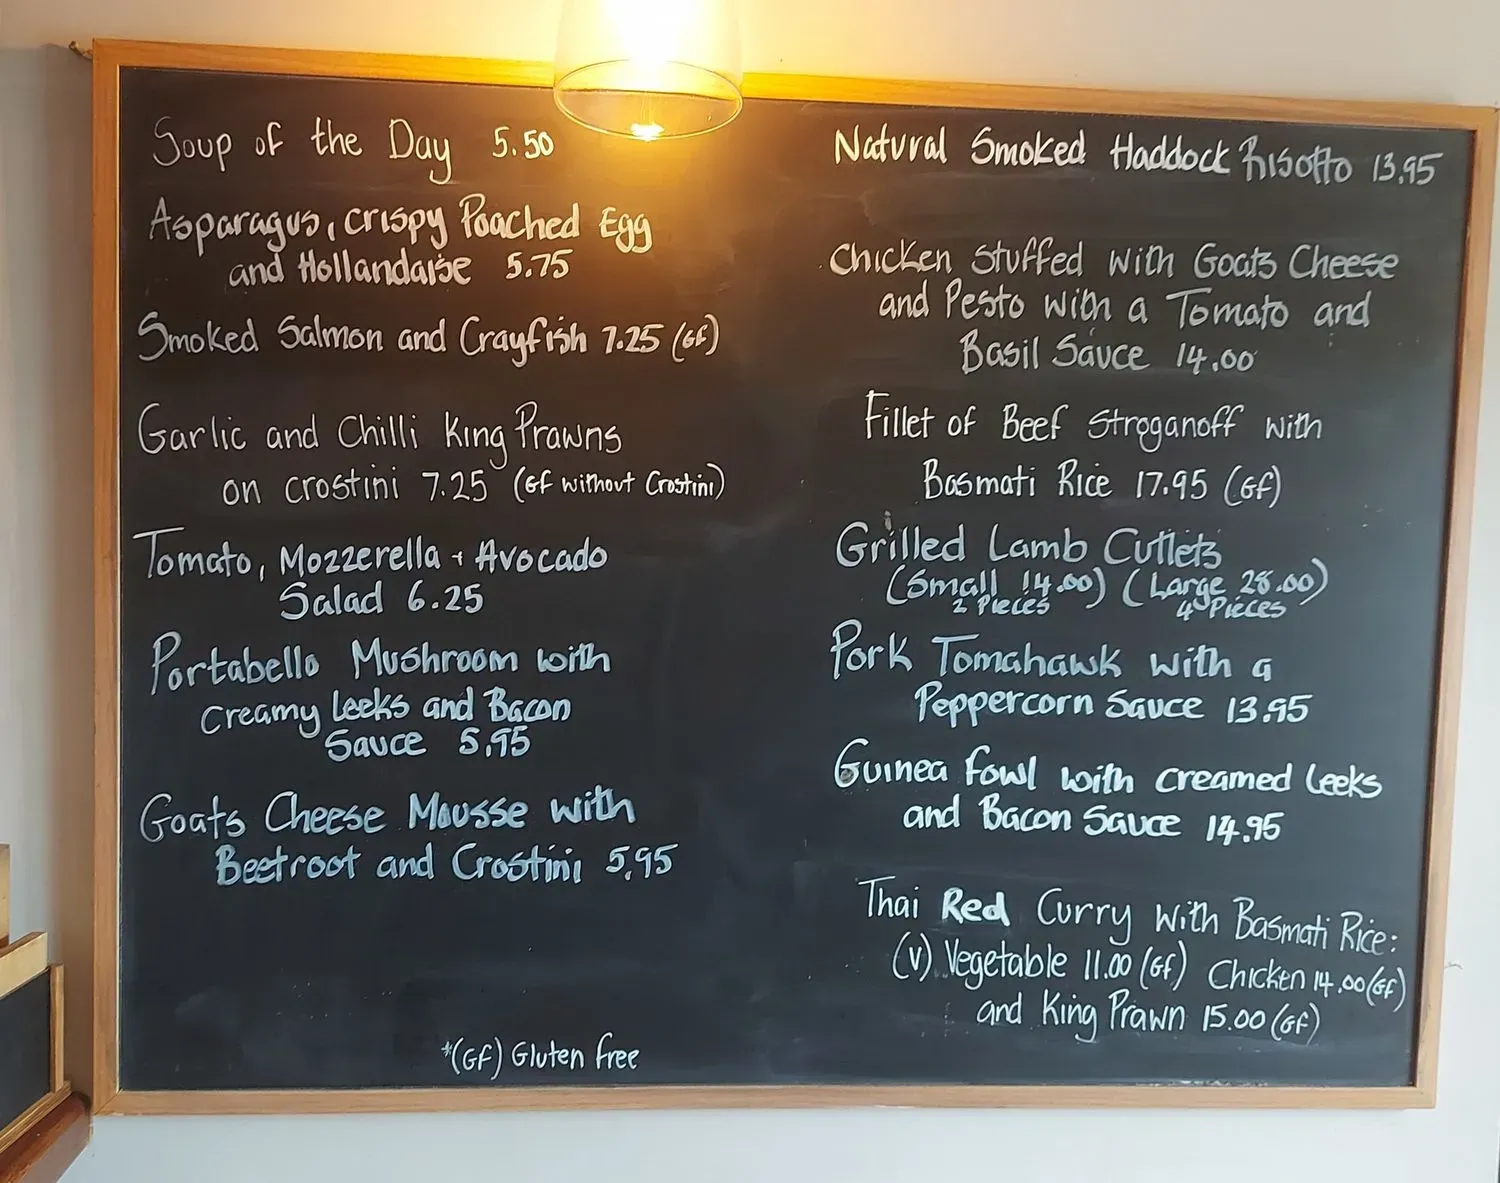 Soup of the Day 5.50
Asparagus, crispy Poached Egg
and Hollandaise 5.75
Smoked Salmon and Crayfish 7.25 (GF)
Garlic and Chilli King Prawns
on crostini 7.25 (GF without Crostini)
Tomato, Mozzerella + Avocado
Salad 6.25
Portabello Mushroom with
Creamy Leeks and Bacon
Sauce 5.95
Goats Cheese Mousse with
Beetroot and Crostini 5.95
*(GF) Gluten free
Natural Smoked Haddock Risotto 13.95
Chicken Stuffed with Goats Cheese
and Pesto with a Tomato and
Basil Sauce 14.00
Fillet of Beef Stroganoff with
Basmati Rice 17.95 (GF)
Grilled Lamb Cutlets
(Small 14.00) (Large 28.00)
2 Pieces 4 Pieces
Pork Tomahawk with a
Peppercorn Sauce 13.95
Guinea Fowl with creamed Leeks
and Bacon Sauce 14.95
Thai Red Curry with Basmati Rice:
(V) Vegetable 11.00 (GF) Chicken 14.00 (GF)
and King Prawn 15.00 (GF)